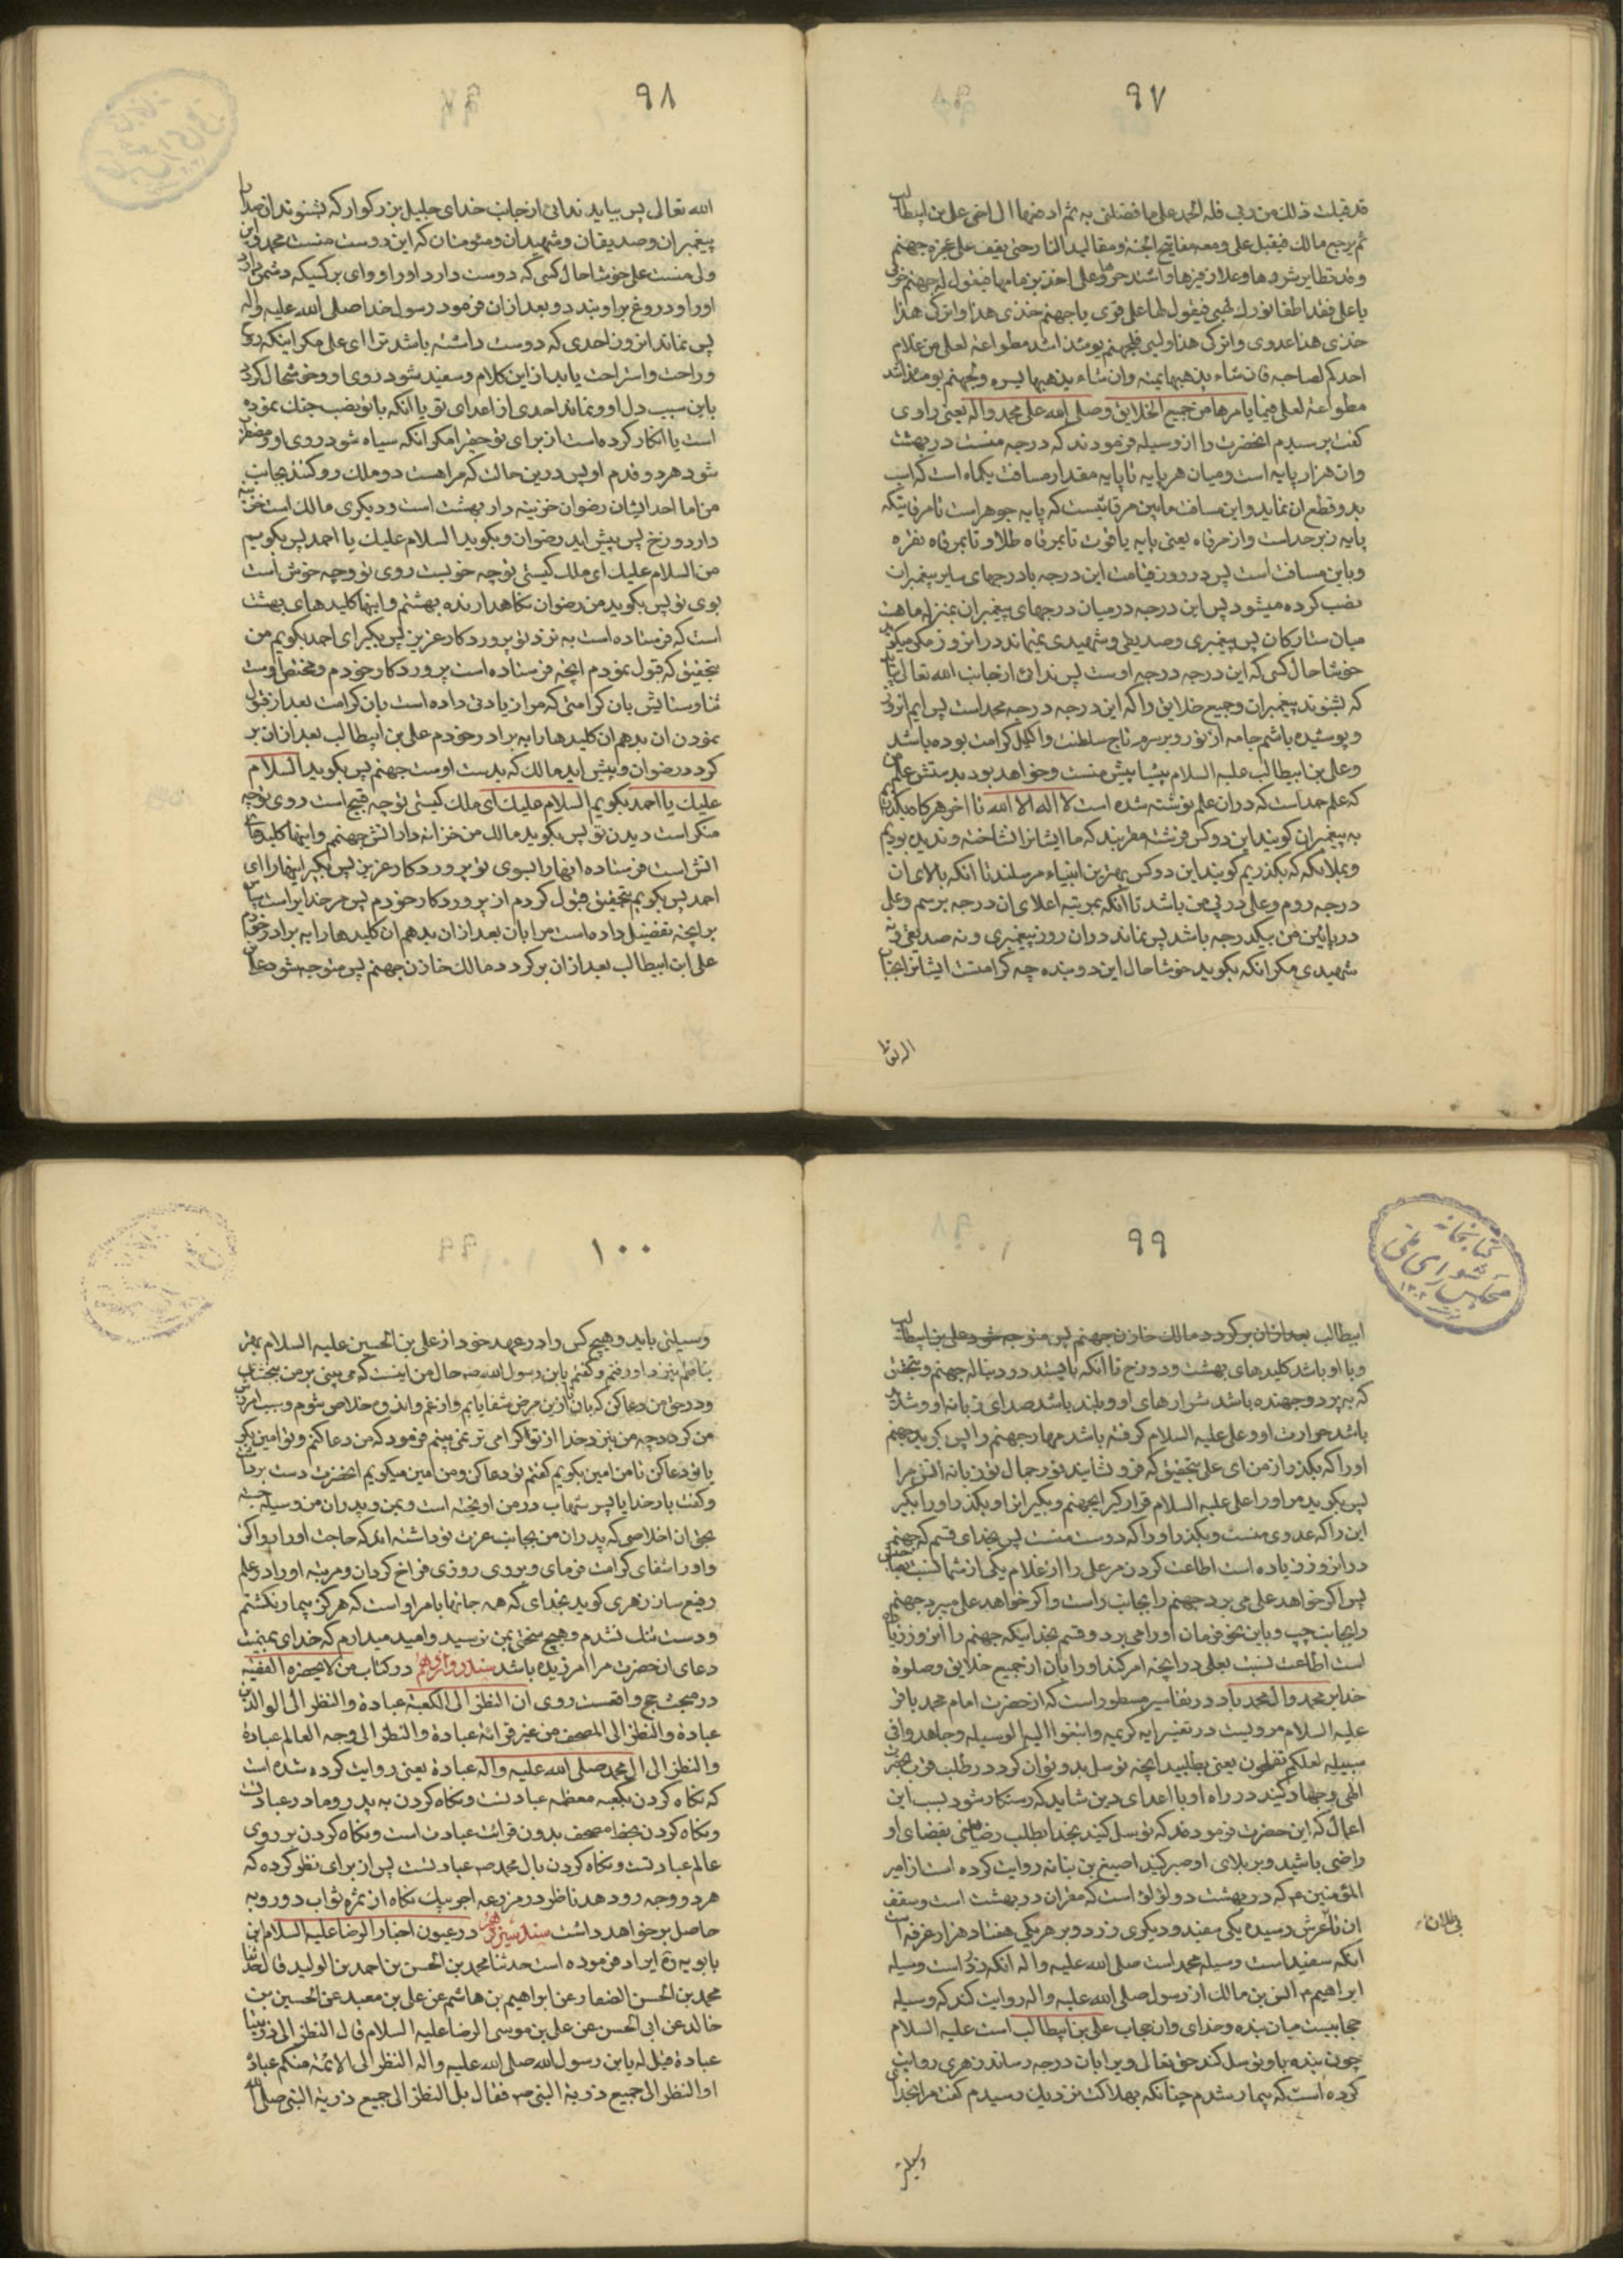 ٩٧
قد قبلت ذلك من ربی فله الحمد علی ما فضلنی به ثم ادفعها الی اخی علی بن ابیطالب
ثم یرجع مالك فیقبل علی و معه مفاتیح الجنة و مقالید النار حتی یقف علی عجزه جهنم
و قد تطایر شررها و علا زفیرها و اشتد حرها و علی اخذ بزمامها فیقول له جهنم جزنی
یا علی فقد اطفا نورك لهبی فیقول لها علی قری یا جهنم خذی هذا و اترکی هذا
خذی هذا عدوی و اترکی هذا ولیی فلجهنم یومئذ اشد مطواعة لعلی من غلام
احدکم لصاحبه فان شاء یذهبها یمنة وان شاء یذهبها یسرة و لجهنم یومئذ اشد
مطواعة لعلی فیما یامرها من جمیع الخلایق و صلی الله علی محمد و اله یعنی راوی
کفت پرسیدم انحضرت را از وسیله فرمودند که درجه منست در بهشت
وان هزار پایه است و میان هر پایه تا پایه مقدار مسافت یکماه است که اسب
بدو قطع ان نماید و این مسافت مابین مرقاتیست که پایه جوهر است تا مرقاتیکه
پایه زبرجد است و از مرقاه یعنی پایه یاقوت تا بمرقاه طلا و تا بمرقاه نقره
و باین مسافت است پس در روز قیامت این درجه با درجهای سایر پیغمبران
نصب کرده میشود پس این درجه در میان درجهای پیغمبران بمنزله ماهست
میان ستارکان پس پیغمبری و صدیقی و شهیدی نمیماند در انروز مکر میکوید
خوشا حال کسی که این درجه درجه اوست پس ندائی از جانب الله تعالی بیاید
که بشنوند پیغمبران و جمیع خلایق را که این درجه درجه محمد است پس ایم انروز
و پوشیده باشم جامه از نور و بر سرم تاج سلطنت و اکلیل کرامت بوده باشد
و علی بن ابیطالب علیه السلام پیشاپیش منست و خواهد بود بدستش علم من
که علم حمد است که در ان علم نوشته شده است لا اله الا الله تا اخر و هر کاه بکذریم
به پیغمبران کویند این دو کس فرشته مقربند که ما ایشانرا نشناخته و ندیده بودیم
و بملائکه که بکذریم کویند این دو کس بهترین انبیاء مرسلند تا انکه بالای ان
درجه روم و علی در پی من باشد تا انکه بمرتبه اعلای ان درجه برسم و علی
در پائین من بیکدرجه باشد پس نماند در ان روز پیغمبری و نه صدیقی و نه
شهیدی مکر انکه بکوید خوشا حال این دو بنده چه کرامتست ایشانرا بجناب
٩٨
الله تعالی پس بیاید ندائی از جانب خدای جلیل بزرکوار که بشنوند ان صدا را
پیغمبران و صدیقان و شهیدان و مؤمنان که این دوست منست محمد و این
ولی منست علی خوشا حال کسی که دوست دارد او را و وای بر کسیکه دشمن دارد
او را و دروغ بر او بندد و بعد از ان فرمود رسول خدا صلی الله علیه و اله
پس نماند انروز احدی که دوست داشته باشد ترا ای علی مکر اینکه رود
و راحت و استراحت یابد از این کلام و سفید شود روی او و خوشحال کردد
باین سبب دل او و نماند احدی از اعدای تو یا انکه با تو نصب جنك نموده
است یا انکار کرده است از برای تو حقی را مکر انکه سیاه شود روی او و مضطرب
شود هر دو قدم او پس در این حالت که مراهست دو ملك رو کنند بجانب
من اما احد ایشان رضوان خزینه دار بهشت است و دیکری مالك است خزینه
دار دوزخ پس پیش اید رضوان و بکوید السلام علیك یا احمد پس بکویم
من السلام علیك ای ملك کیستی تو چه خوبست روی تو و چه خوش است
بوی تو پس بکوید من رضوان نکاهدارنده بهشتم و اینها کلیدهای بهشت
است که فرستاده است به نزد تو پروردکار عزیز پس بکیر ای احمد بکویم من
بتحقیق که قبول نمودم انچه فرستاده است پروردکار خودم و مختص اوست
ثنا و ستایش بان کرامتی که مرا زیادتی داده است بان کرامت بعد از قبول
نمودن ان بدهم ان کلیدها را به برادر خودم علی بن ابیطالب بعد از ان بر
کردد رضوان و پیش اید مالك که بدست اوست جهنم پس بکوید السلام
علیك یا احمد بکویم السلام علیك ای ملك کیستی تو چه قبیح است روی تو و چه
منکر است دیدن تو پس بکوید مالك من خزانه دار اتش جهنمم و اینها کلیدهای
اتش است فرستاده انها را بسوی تو پروردکار عزیز پس بکیر اینها را ای
احمد پس بکویم بتحقیق قبول کردم از پروردکار خودم پس مر خدایراست سپاس
بر انچه تفضیل داده است مرا بان بعد از ان بدهم ان کلیدها را به برادر خودم
علی ابن ابیطالب بعد از ان برکردد مالك خازن جهنم پس متوجه شود علی بن
٩٩
ابیطالب بعد از ان برکردد مالك خازن جهنم پس متوجه شود علی بن ابیطالب
و با او باشد کلیدهای بهشت و دوزخ تا انکه بایستد در دنباله جهنم و بتحقیق
که بپرد و جهنده باشد شرارهای او و بلند باشد صدای زبانه او و شدید
باشد حرارت او و علی علیه السلام کرفته باشد مهار جهنم را پس کوید جهنم
او را که بکذر از من ای علی بتحقیق که فرو نشانید نور جمال تو زبانه اتش مرا
پس بکوید مر او را علی علیه السلام قرار کیر ای جهنم و بکیر این را و بکذر او را بکیر
این را که عدوی منست و بکذار او را که دوست منست پس بخدای قسم که جهنم
در انروز زیاده است اطاعت کردن مر علی را از غلام یکی از شما نسبت بصاحبش
پس اکر خواهد علی می برد جهنم را بجانب راست و اکر خواهد علی میبرد جهنم
را بجانب چپ و باین نحو فرمان او را می برد و قسم بخدائیکه جهنم را انروز زیاده
است اطاعت نسبت بعلی در انچه امر کند او را بان از جمیع خلایق و صلوة
خدا بر محمد و ال محمد باد در تفاسیر مسطور است که از حضرت امام محمد باقر
علیه السلام مرویست در تفسیر ایه کریمه و ابتغوا الیه الوسیله و جاهدوا فی
سبیله لعلکم تفلحون یعنی بطلبید انچه توسل بدو توان کرد در طلب قرب بحضرت
الهی و جهاد کنید در راه او با اعدای دین شاید که رستکار شوید بسبب این
اعمال که این حضرت فرمودند که توسل کنید بخدا بطلب رضای یعنی بقضای او
راضی باشید و بر بلای او صبر کنید اصبغ بن نباته روایت کرده است از امیر
المؤمنین ع که در بهشت دو لؤلؤ است که مقران در بهشت است و سقف
ان تا عرش رسیده یکی سفید و دیکری زرد و بر هر یکی هفتاد هزار غرفه است
انکه سفید است وسیله محمد است صلی الله علیه و اله انکه زرد است وسیله
ابراهیم ع انس بن مالك از رسول صلی الله علیه و اله روایت کند که وسیله
حجابیست میان بنده و خدای وان حجاب علی بن ابیطالب است علیه السلام
چون بنده باو توسل کند حق تعالی ویرا بان درجه رساند زهری روایت
کرده است که بیمار شدم چنانکه بهلاکت نزدیك رسیدم کفت مرا بخدای
وسیلتی
١٠٠
وسیلتی باید و هیچ کس را در عهد خود از علی بن الحسین علیه السلام بهتر
نیافتم بنزد او رفتم و کفتم یابن رسول الله ص حال من اینست که می بینی بر من ببخشای
و در حق من دعا کن که بان از این مرض شفا یابم و از غم و اندوه خلاص شوم و سبب امرزش
من کردد چه من بنزد خدا از تو اکرامی تر نمی بینم فرمود که من دعا کنم و تو امین بکو
یا تو دعا کن تا من امین بکویم کفتم تو دعا کن و من امین میکویم انحضرت دست برداشت
و کفت بار خدایا پسر شهاب در من اویخته است و بمن و پدران من وسیله جسته
بحق ان اخلاصی که پدران من بجانب عزت تو داشته اند که حاجت او را روا کن
و او را شفای کرامت فرمای و بر وی روزی فراخ کردان و مرتبه او را در علم
رفیع ساز زهری کوید بخدای که همه جانها بامر او است که هرکز بیمار نکشتم
و دست تنك نشدم و هیچ سختی بمن نرسید و امید میدارم که خدای بمیمنت
دعای ان حضرت مرا امرزیده باشد سند دوازدهم در کتاب من لا یحضره الفقیه
در مبحث حج واقعست روی ان النظر الی الکعبة عبادة و النظر الی الوالدین
عبادة و النظر الی المصحف من غیر قرائة عبادة و النظر الی وجه العالم عبادة
و النظر الی ال محمد صلی الله علیه و اله عبادة یعنی روایت کرده شده است
که نکاه کردن بکعبه معظمه عبادتست و نکاه کردن به پدر و مادر عبادتست
و نکاه کردن بخط مصحف بدون قرائت عبادت است و نکاه کردن بر روی
عالم عبادتست و نکاه کردن بال محمد ص عبادتست پس از برای نظر کرده که
هر دو وجه رو دهد ناظر در مزرعه اجر بیك نکاه از ثمره ثواب دو رویه
حاصل بر خواهد داشت سند سیزدهم در عیون اخبار الرضا علیه السلام ابن
بابویه ره ایراد فرموده است حدثنا محمد بن الحسن بن احمد بن الولید قال حدثنا
محمد بن الحسن الصفار عن ابراهیم بن هاشم عن علی بن معبد عن الحسین بن
خالد عن ابی الحسن عن علی بن موسی الرضا علیه السلام قال النظر الی ذریتنا
عبادة قیل له یابن رسول الله صلی الله علیه و اله النظر الی الائمة منکم عبادة
او النظر الی جمیع ذریة النبی ص فقال بل النظر الی جمیع ذریة النبی صلی الله
کتابخانه
مجلس شورای ملی